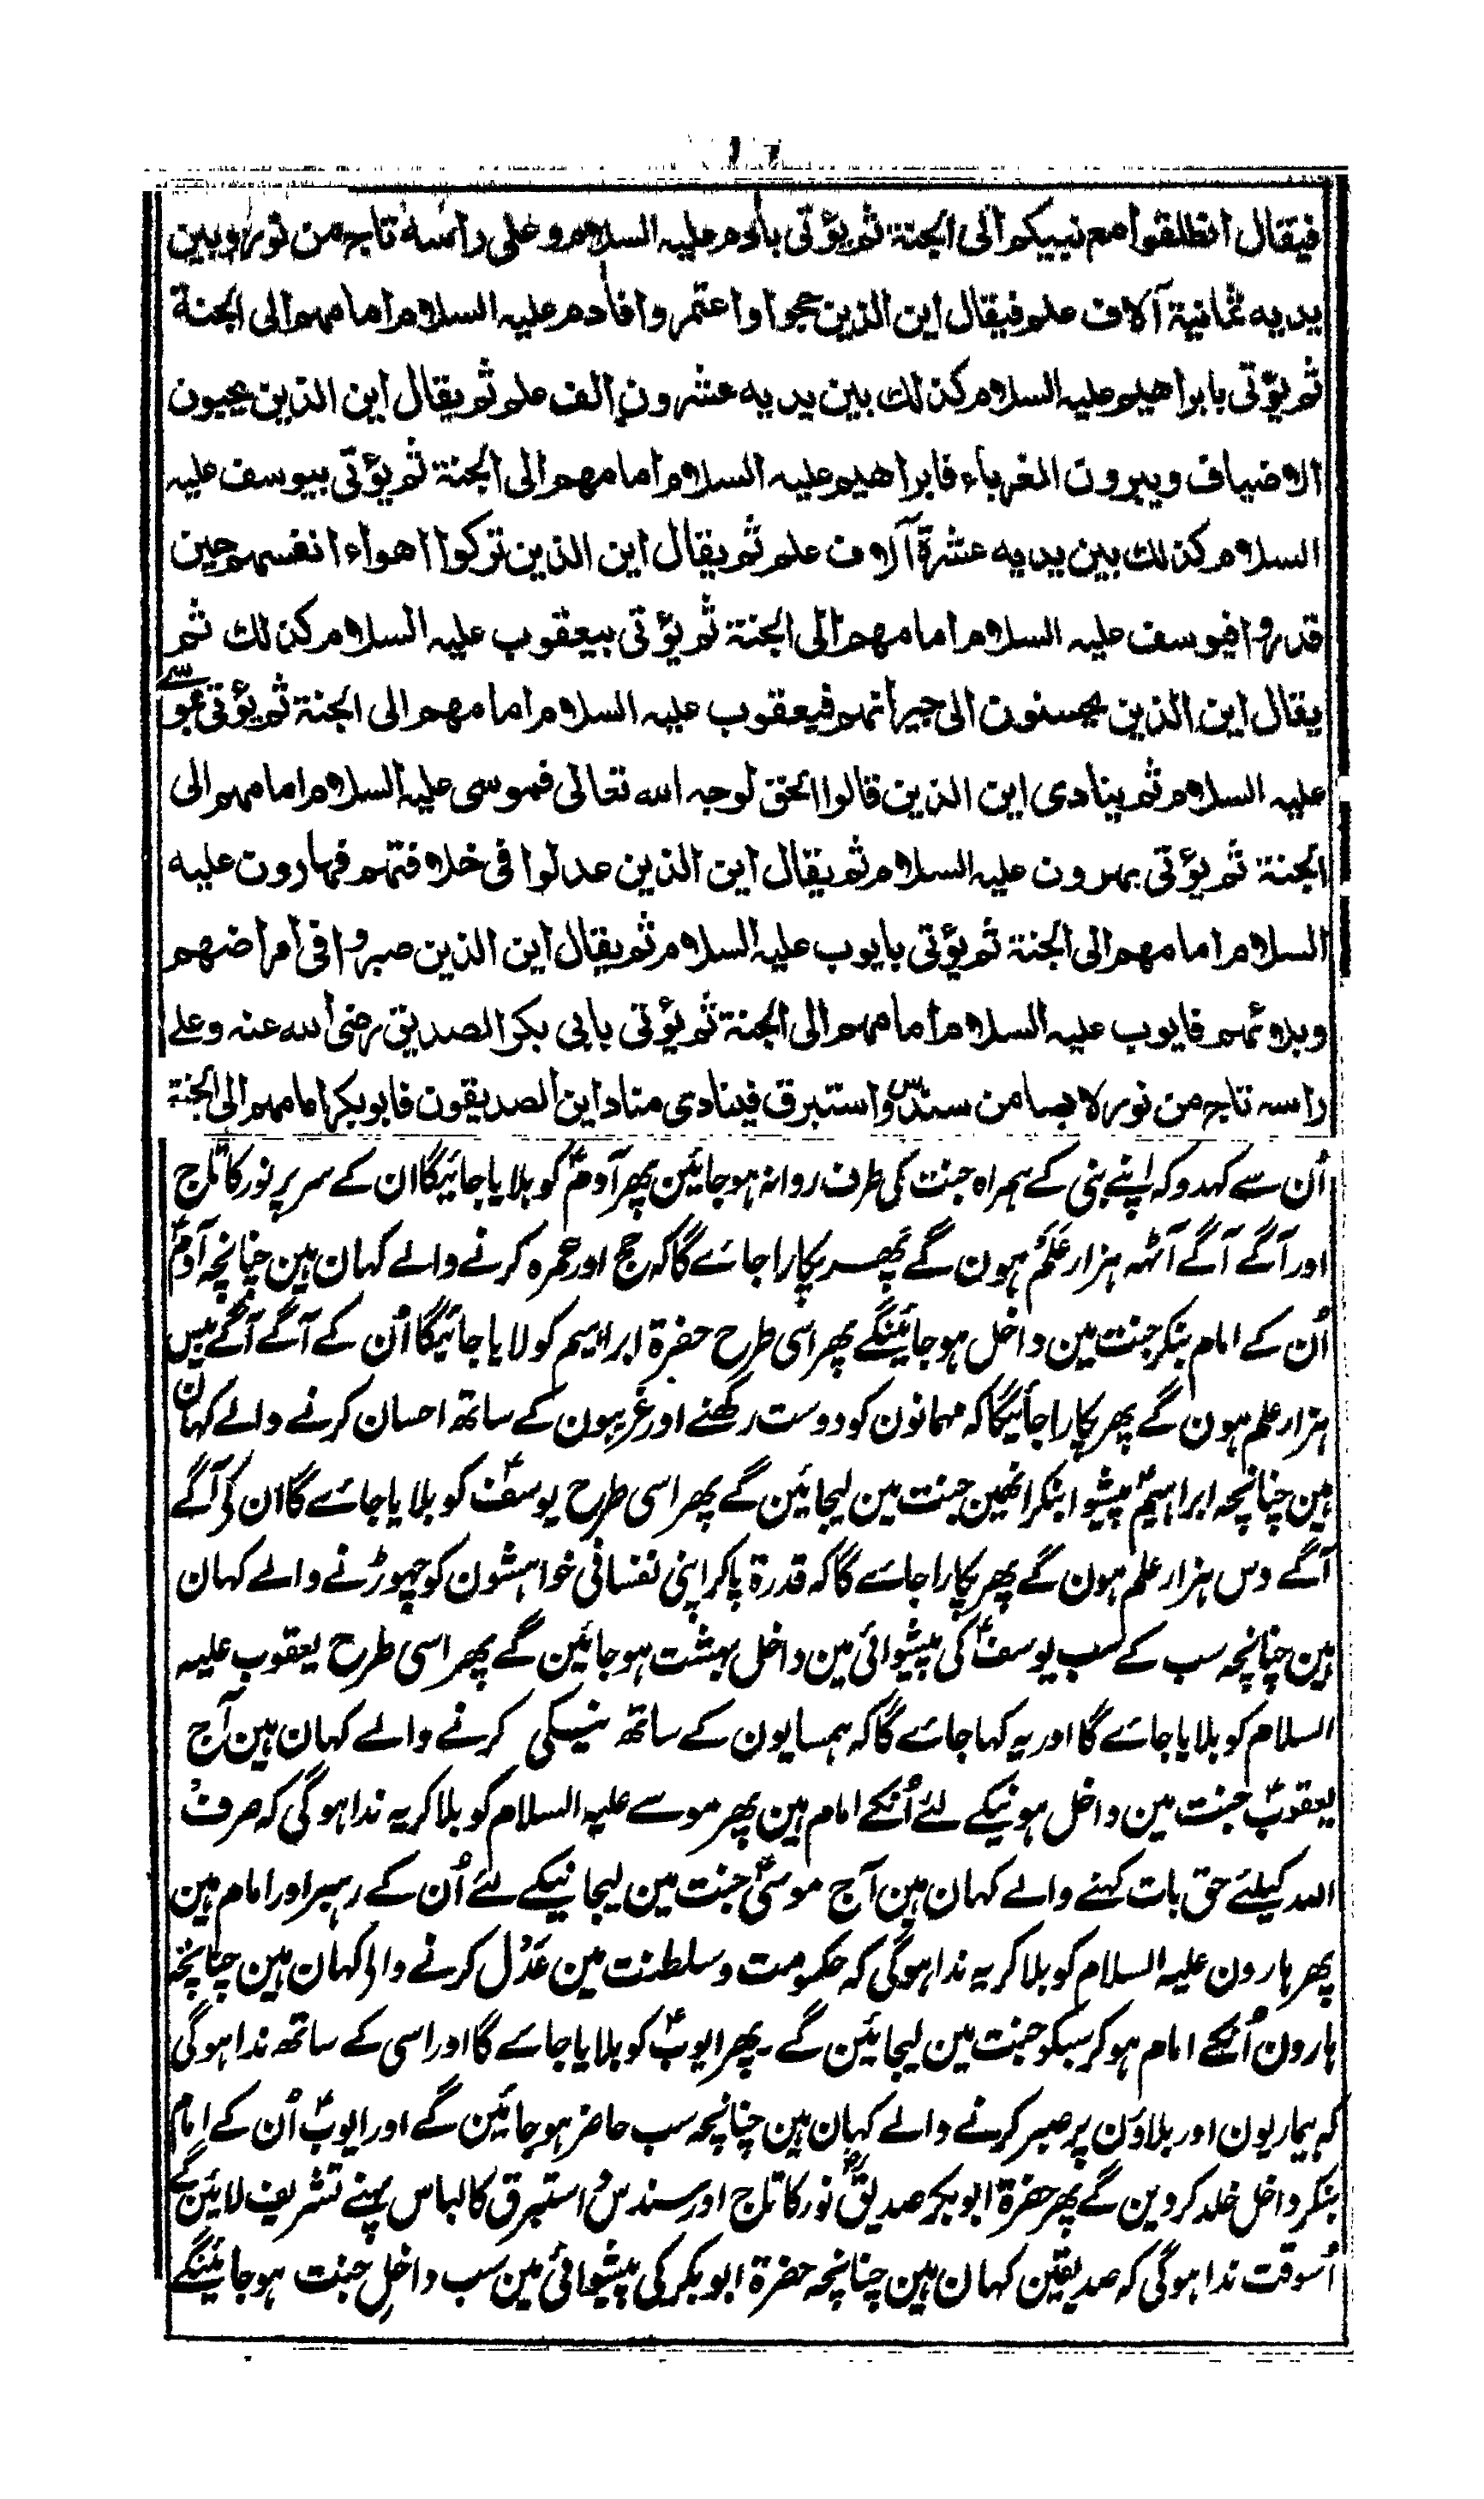 فيقال انطلقوا مع نبيكم الى الجنة ثم يؤتى بادم عليه السلام وعلى راسه تاج من نور وبين
يديه ثمانية آلاف علم فيقال اين الذين حجوا واعتمروا فادم عليه السلام امامهم الى الجنة
ثم يؤتى بابراهيم عليه السلام كذلك بين يديه عشرون الف علم ثم يقال اين الذين يحبون
الاضياف ويبرون الغرباء فابراهيم عليه السلام امامهم الى الجنة ثم يؤتى بيوسف عليه
السلام كذلك بين يديه عشرة آلاف علم ثم يقال اين الذين تركوا اهواء انفسهم حين
قدروا فيوسف عليه السلام امامهم الى الجنة ثم يؤتى بيعقوب عليه السلام كذلك ثم
يقال اين الذين يحسنون الى جيرانهم فيعقوب عليه السلام امامهم الى الجنة ثم يؤتى بموسى
عليه السلام ثم ينادى اين الذين قالوا الحق لوجه الله تعالى فموسى عليه السلام امامهم الى
الجنة ثم يؤتى بهرون عليه السلام ثم يقال اين الذين عدلوا فى خلافتهم فهارون عليه
السلام امامهم الى الجنة ثم يؤتى بايوب عليه السلام ثم يقال اين الذين صبروا فى امراضهم
وبلائهم فايوب عليه السلام امامهم الى الجنة ثم يؤتى بابى بكر الصديق رضى الله عنه وعلے
راسه تاج من نور لابسا من سندس واستبرق فينادى مناد اين الصديقون فابوبكر امامهم الى الجنة
اُن سے کہدو کہ اپنے نبی کے ہمراہ جنت کی طرف روانہ ہوجائین پھر آدمؑ کو بلایا جائیگا ان کے سر پر نور کا تاج
اور آگے آگے آٹھہ ہزار عَلَم ہون گے پھر پکارا جاۓ گا کہ حج اور عمرہ کرنے والے کہان ہین چنانچہ آدمؑ
اُن کے امام بنکر جنت مین داخل ہوجائینگے پھر اسی طرح حضرۃ ابراہیم کو لایا جائیگا اُن کے آگے آگے بیس
ہزار علم ہون گے پھر پکارا جائیگا کہ مہمانون کو دوست رکھنے اور غریبون کے ساتھ احسان کرنے والے کہان
ہین چنانچہ ابراہیمؑ پیشوا بنکر انھین جنت مین لیجائین گے پھر اسی طرح یوسفؑ کو بلایا جاۓ گا ان کے آگے
آگے دس ہزار علم ہون گے پھر پکارا جاۓ گا کہ قدرۃ پاکر اپنی نفسانی خواہشون کو چھوڑنے والے کہان
ہین چنانچہ سب کے سب یوسفؑ کی پیشوائی مین داخل بہشت ہوجائین گے پھر اسی طرح یعقوب علیہ
السلام کو بلایا جاۓ گا اور یہ کہا جاۓ گا کہ ہمسایون کے ساتھ نیکی کرنے والے کہان ہین آج
یعقوبؑ جنت مین داخل ہونیکے لئے اُنکے امام ہین پھر موسے علیہ السلام کو بلاکر یہ ندا ہوگی کہ صرف
اللہ کیلئے حق بات کہنے والے کہان ہین آج موسیٰؑ جنت مین لیجانیکے لئے اُن کے رہبر اور امام ہین
پھر ہارون علیہ السلام کو بلاکر یہ ندا ہوگی کہ حکومت و سلطنت مین عَدْل کرنے والے کہان ہین چنانچہ
ہارون اُنکے امام ہوکر سبکو جنت مین لیجائین گے ۔ پھر ایوبؑ کو بلایا جاۓ گا اور اسی کے ساتھ ندا ہوگی
کہ بیماریون اور بلاؤن پر صبر کرنے والے کہان ہین چنانچہ سب حاضر ہوجائین گے اور ایوبؑ اُن کے امام
بنکر داخل خلد کردین گے پھر حضرۃ ابوبکر صدیقؓ نور کا تاج اور سندس و استبرق کا لباس پہنے تشریف لائین گے
اُسوقت ندا ہوگی کہ صدیقین کہان ہین چنانچہ حضرۃ ابوبکر کی پیشوائی مین سب داخلِ جنت ہوجائینگے